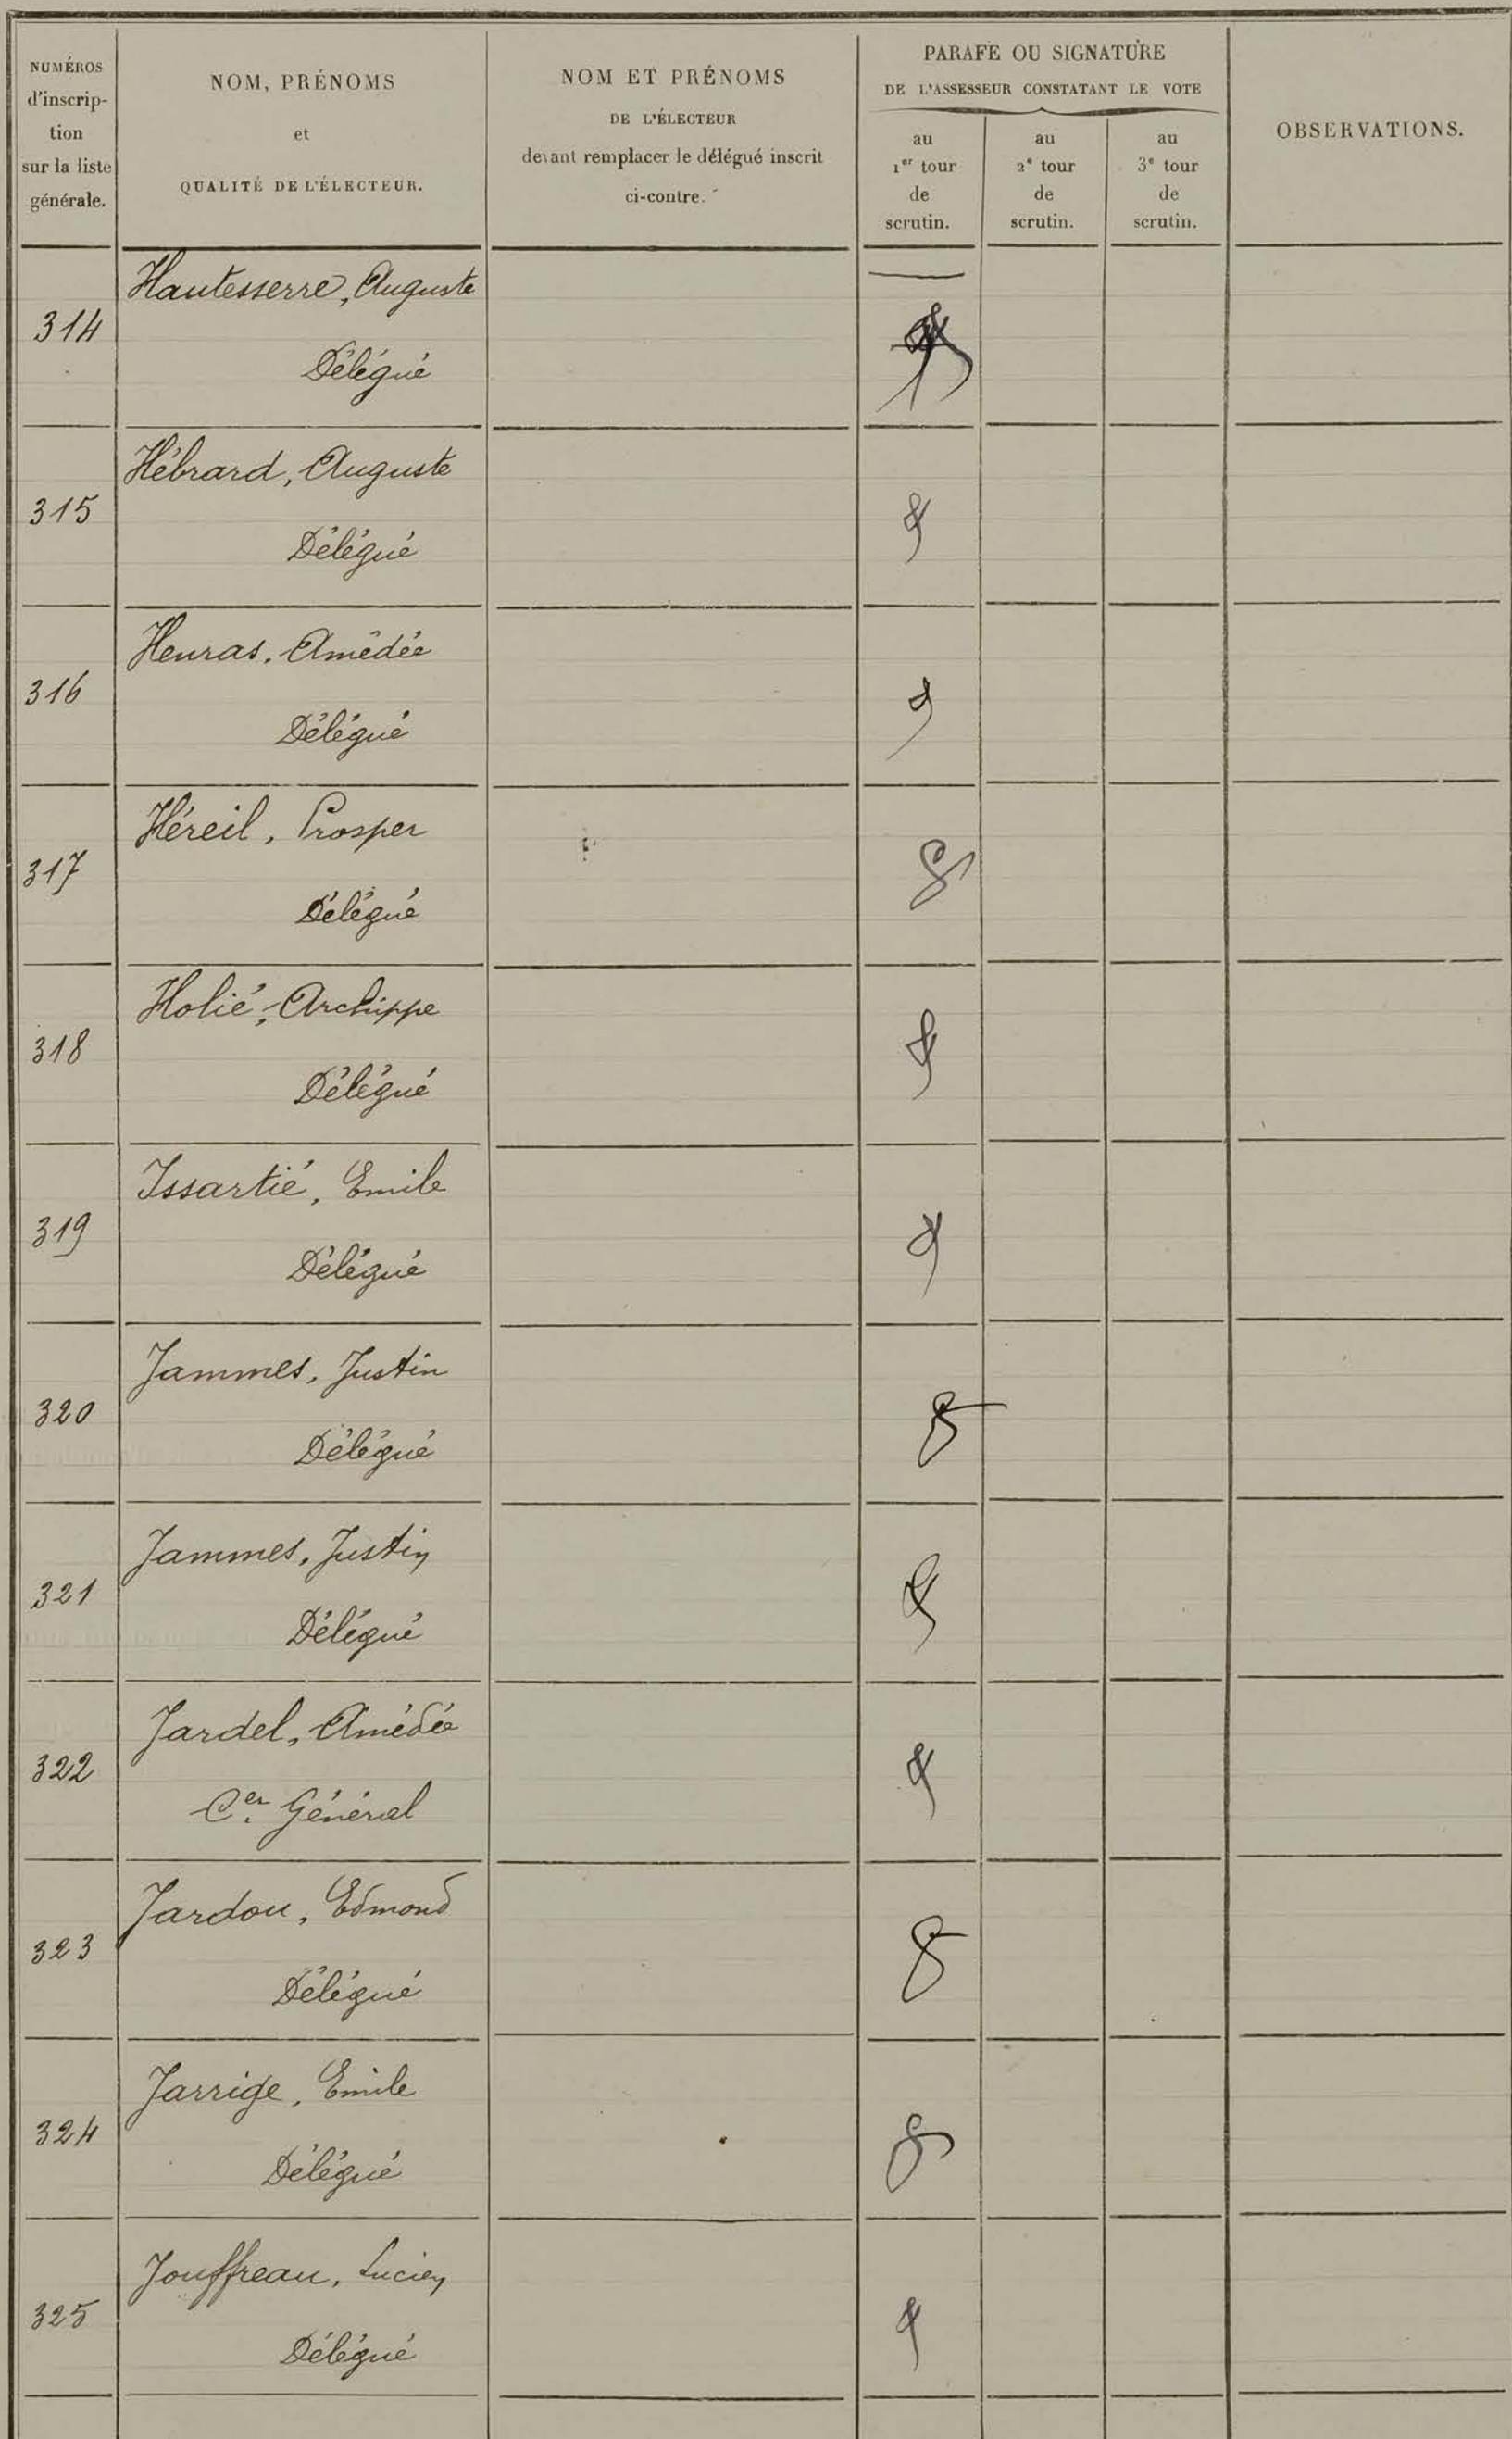 NUMÉROS
d'inscrip-
tion
sur la liste
générale.
NOM, PRÉNOMS
et
QUALITÉ DE L'ÉLECTEUR.
NOM ET PRÉNOMS
DE L'ÉLECTEUR
devant remplacer le délégué inscrit
ci-contre.
PARAFE OU SIGNATURE
DE L'ASSESSEUR CONSTATANT LE VOTE
au
1er tour
de
scrutin.
au
2e tour
de
scrutin.
au
3e tour
de
scrutin.
OBSERVATIONS.
314
Hautesserre, Auguste
Délégué
315
Hébrard, Auguste
Délégué
316
Heuras, Amédée
Délégué
317
Héreil, Prosper
Délégué
318
Holié, Archippe
Délégué
319
Issartié, Emile
Délégué
320
Jammes, Justin
Délégué
321
Jammes, Justin
Délégué
322
Jardel, Amédée
Cer Général
323
Jardou, Edmond
Délégué
324
Jarrige, Emile
Délégué
325
Jouffreau, Lucien
Délégué